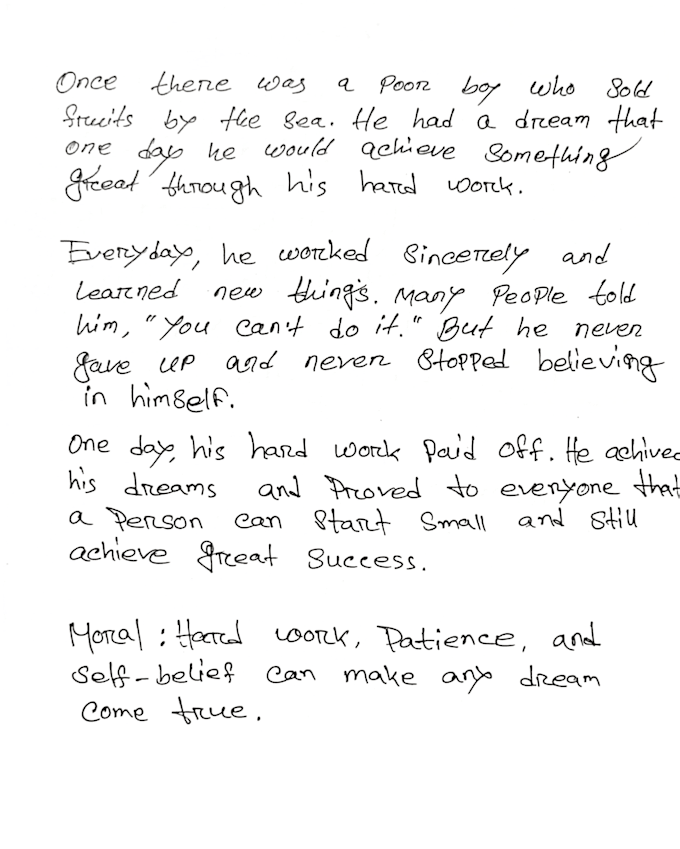 Once there was a poor boy who sold
fruits by the sea. He had a dream that
one day he would achieve something
great through his hard work.
Everyday, he worked sincerely and
learned new things. Many people told
him, "You can't do it." But he never
gave up and never stopped believing
in himself.
One day, his hard work paid off. He achived
his dreams and proved to everyone that
a person can start small and still
achieve great success.
Moral : Hard work, Patience, and
self-belief can make any dream
come true.